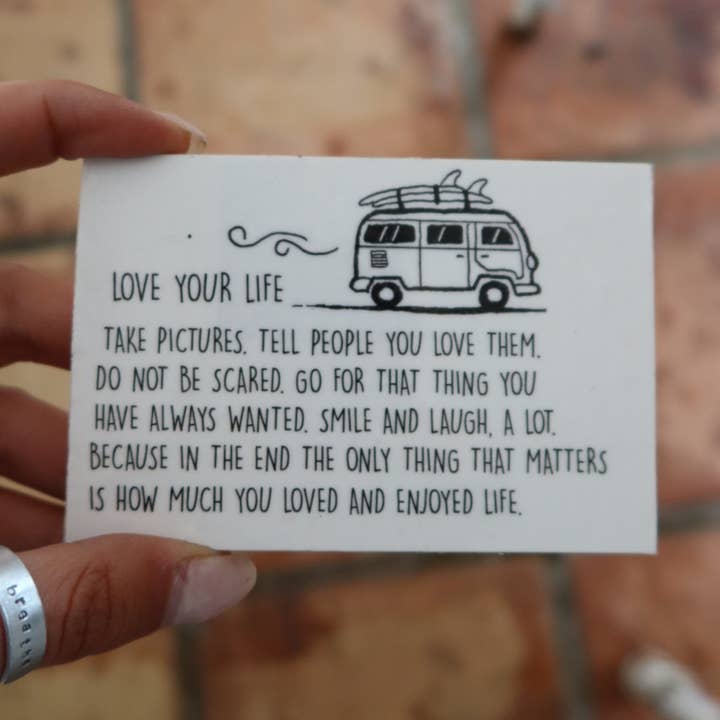 LOVE YOUR LIFE
TAKE PICTURES. TELL PEOPLE YOU LOVE THEM.
DO NOT BE SCARED. GO FOR THAT THING YOU
HAVE ALWAYS WANTED. SMILE AND LAUGH, A LOT.
BECAUSE IN THE END THE ONLY THING THAT MATTERS
IS HOW MUCH YOU LOVED AND ENJOYED LIFE.
breathe